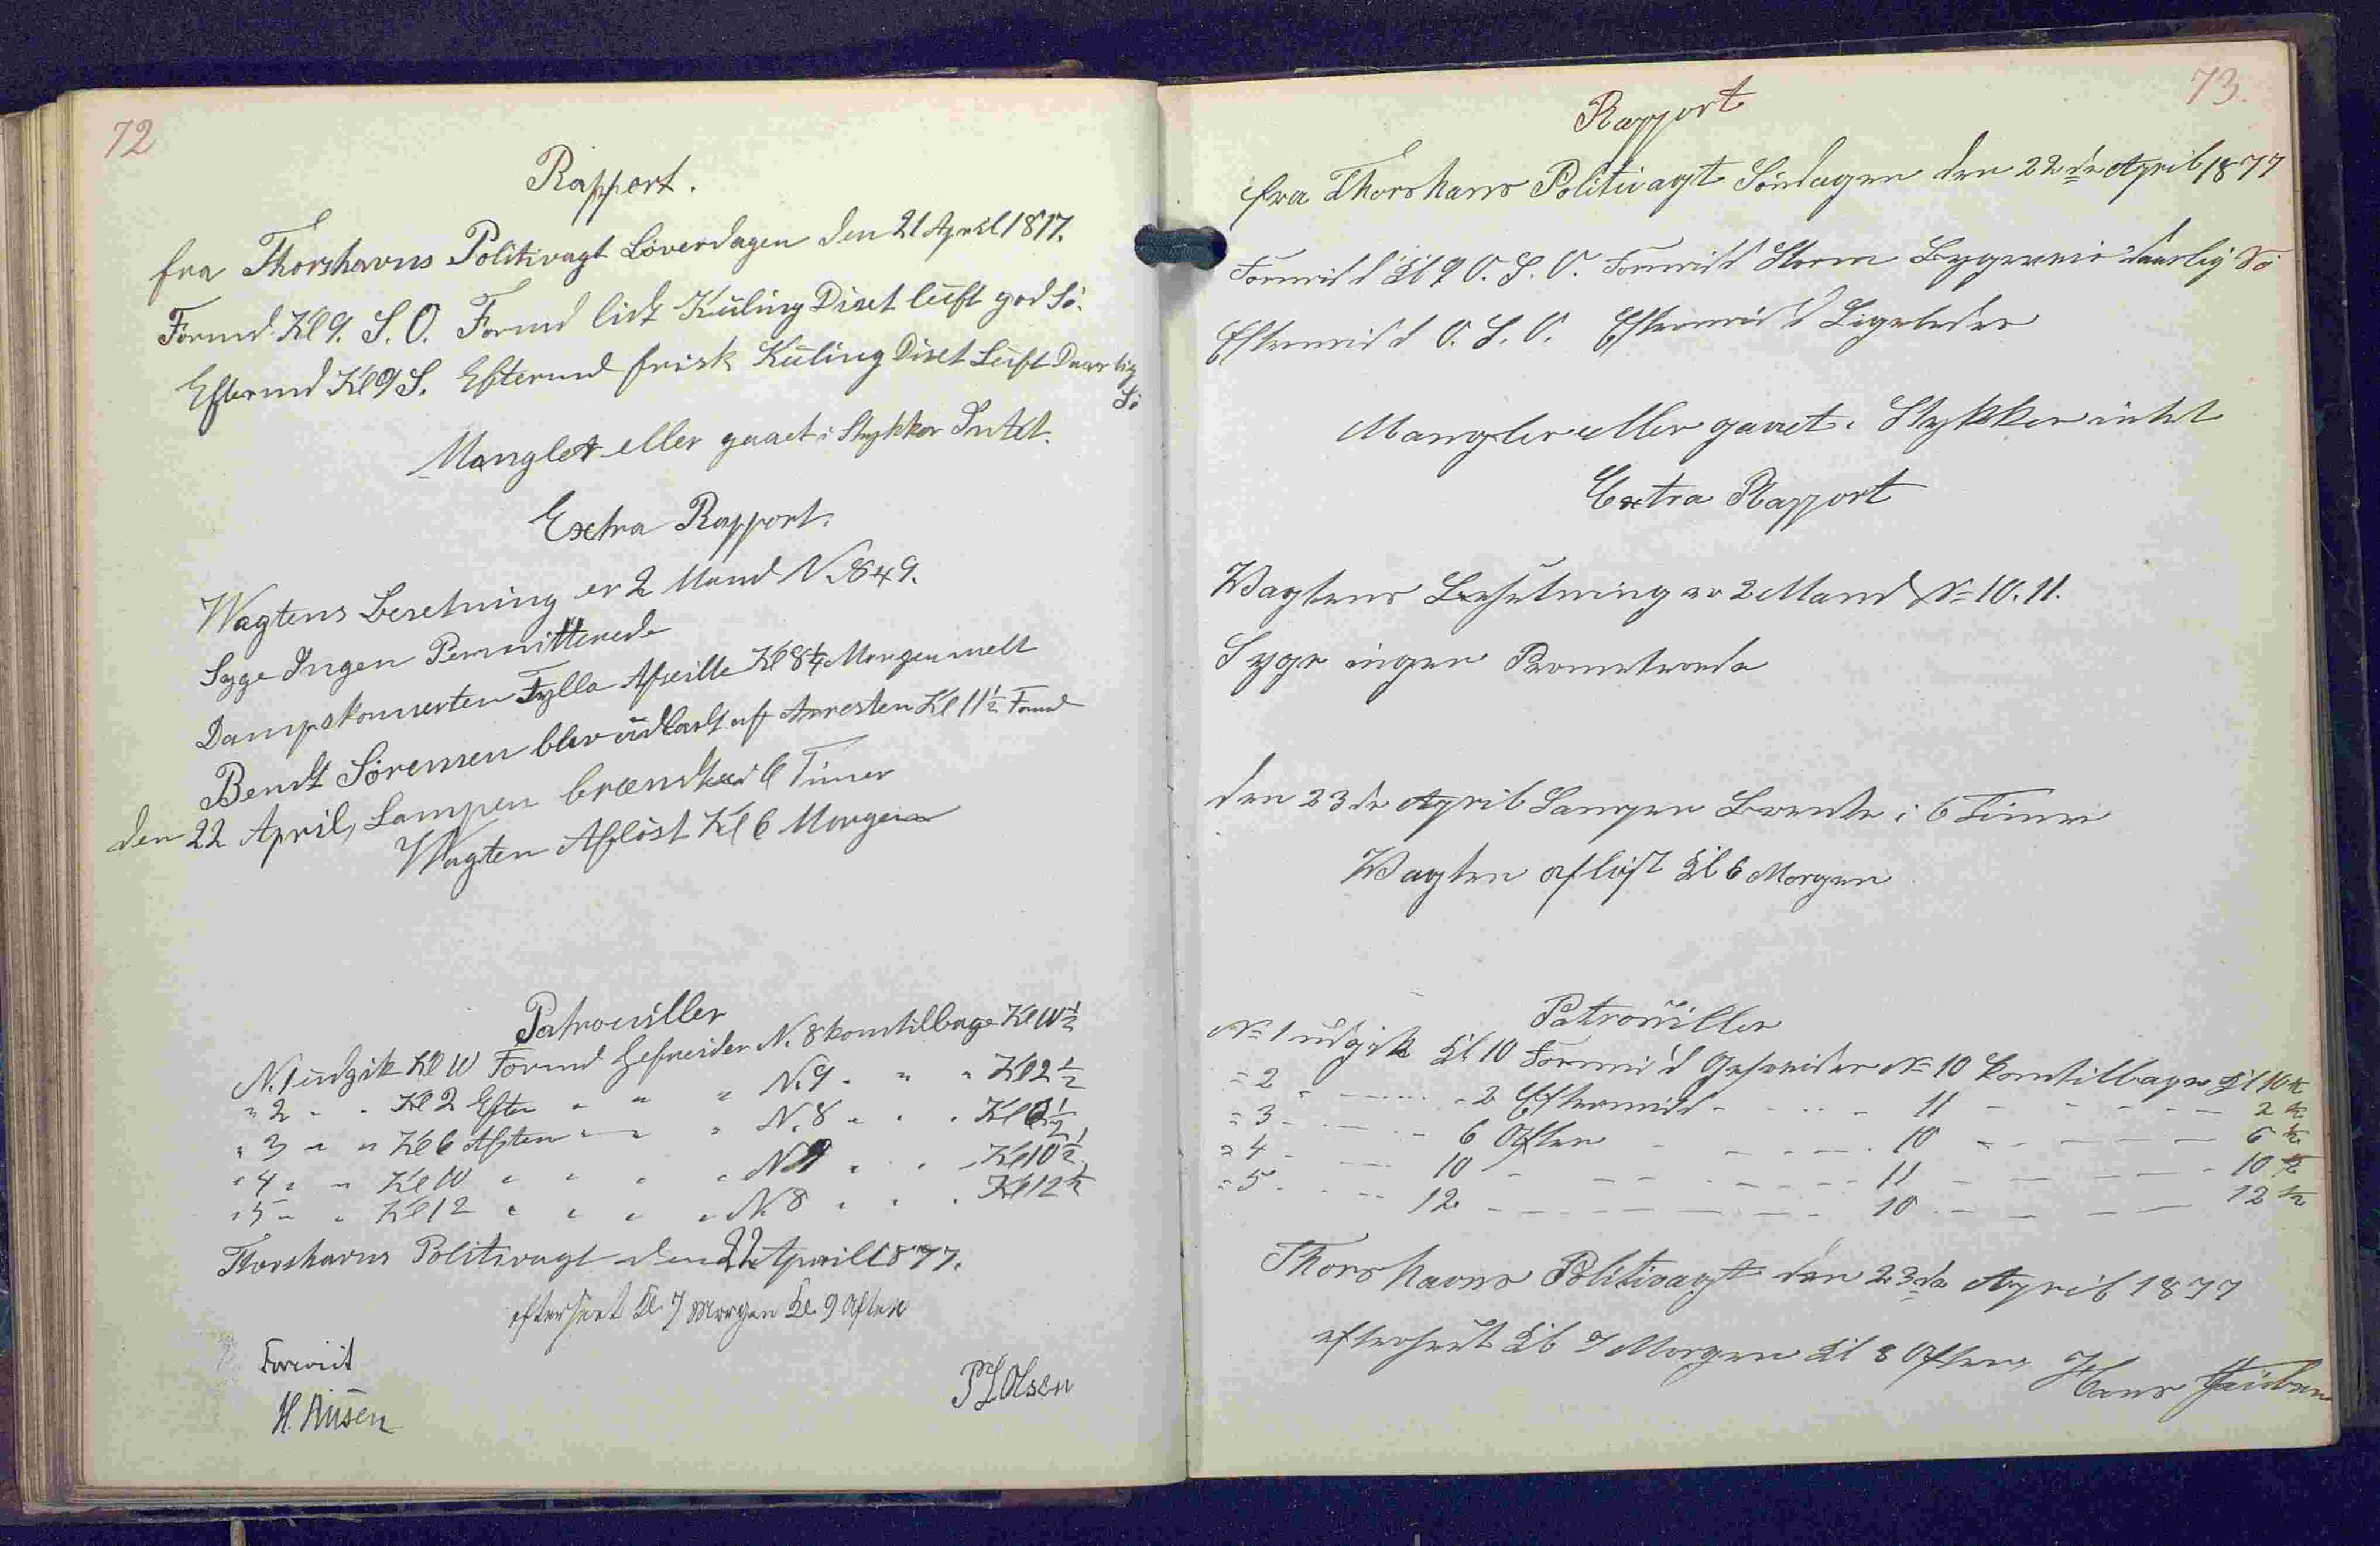 72
Rapport.
fra Thorshavns Politivagt Löverdagen den 21 April 1877.
Formd. Kl 9. S. O. Formd lidt Kuling Diset luft god Sö.
Eftermd Kl 9 S. Eftermd frisk Kuling Diset Luft Daarlig
Sö
Mangler eller gaaet i Stykker Intet.
Extra Rapport.
Wagtens Besetning er 2 Mand N. 8 & 9.
Syge Ingen Permitterede
Dampskonnerten Fylla Afseilte Kl 8¼ Morgen
Bendt Sörensen blev udladt af Arresten Kl 11½ Formd
den 22 April, Lampen brændte i 6 Timer
Wagten Aflöst Kl 6 Morgen
Patrouiller
N. 1 udgik Kl 10 Formd Gefreider N. 8 kom tilbage Kl 10½
" 2 " " Kl 2 Efter " " " N. 9 " " " Kl 2½
" 3 " " Kl 6 Aften " " " N. 8 " " " Kl 6½
" 4 " " Kl 10 " " " " N 9 " " " Kl 10½
" 5 " " Kl 12 " " " " N. 8 " " " Kl 12½
Thorshavns Politivagt den 22 April 1877.
efterseet Kl. 7 Morgen Kl. 9 Aften
H.
Olsen
73.
Rapport
fra Thorshavns Politivagt Söndagen den 22de April 1877
Formidd Kl 9 O. S. O. Formidd Storm Bygeveir daarlig Sö
Eftermidd O. S. O. Eftermidd Ligeledes
Mangler eller gaaet i Stykker intet
Extra Rapport
Wagtens Besetning er 2 Mand No 10. 11.
Syge ingen
den 23de April Lampen Brente i 6 Timer
Wagten aflöst Kl 6 Morgen
Patrouiller
No 1 udgik Kl 10 Formidd Gefreider No 10 kom tilbage Kl 10½
= 2 - - - - 2 Eftermidd - - - - 11 - - - - 2½
= 3 - - - - 6 Aften - - - - 10 - - - - 6½
= 4 - - - - 10 - - - - 11 - - - - 10½
= 5 - - - - 12 - - - - 10 - - - - 12½
Thorshavns Politivagt den 23de April 1877
efterseet Kl 7 Morgen Kl 8 Aften Hans